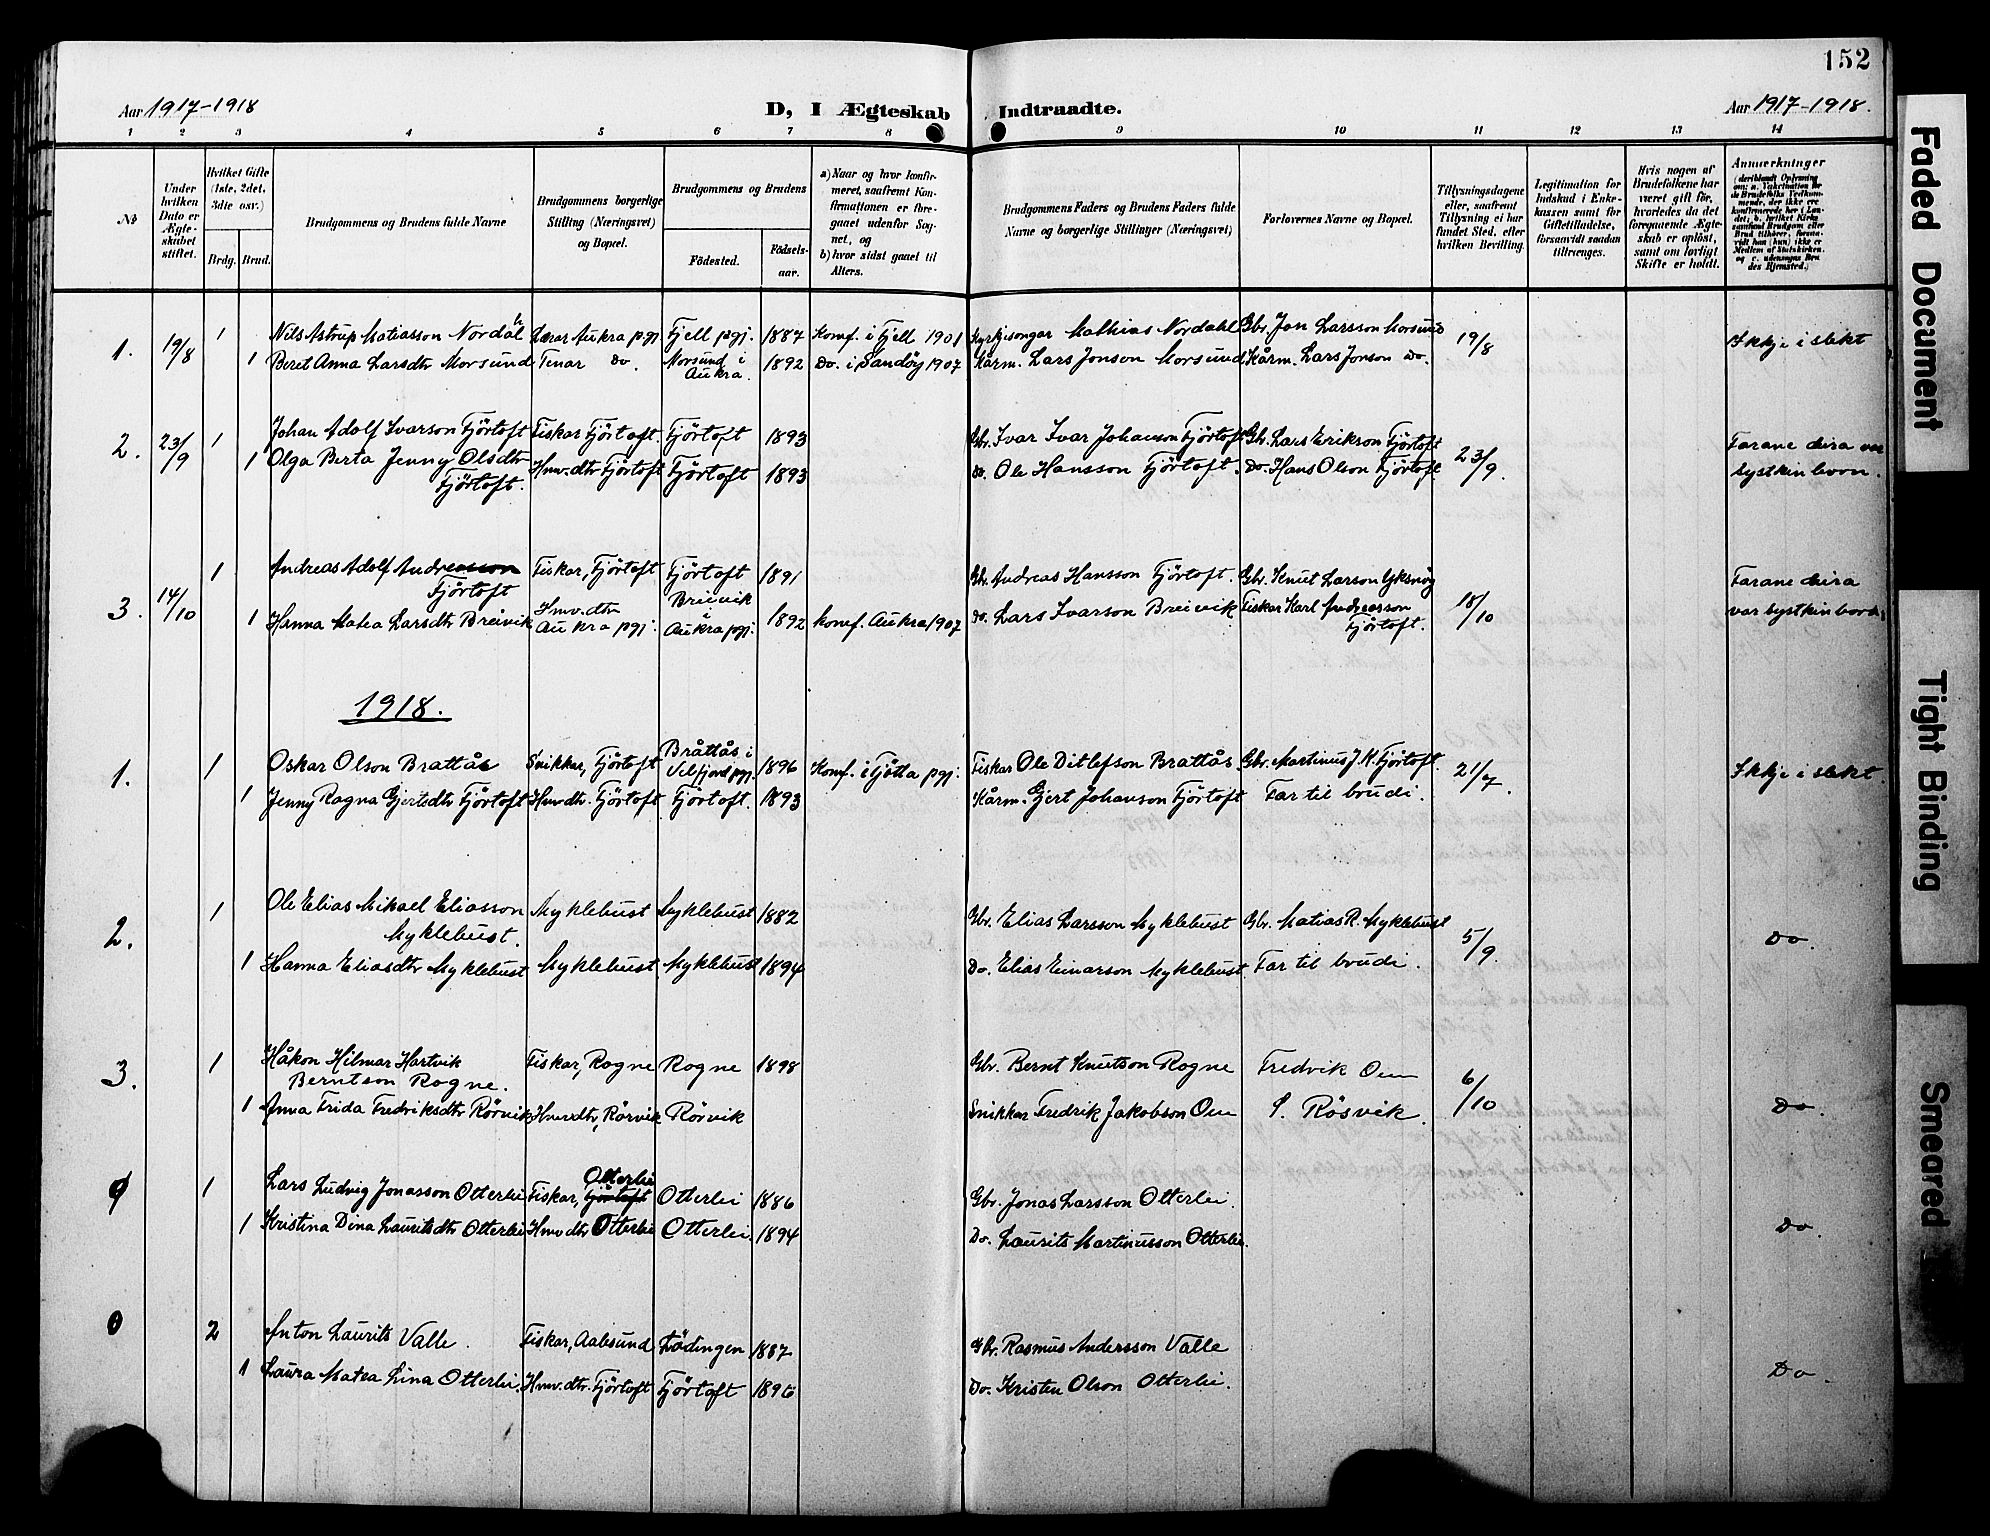 152
Aar 1917-1918
D, I Ægteskab Indtraadte.
Aar 1917-1918.
1 2 3 4 5 6 7 8 9 10 11 12 13 14
No
Under hvilken Dato er Ægteskabet stiftet.
Hvilket Gifte (1ste, 2det, 3die osv.)
Brdg. Brud.
Brudgommens og Brudens fulde Navne
Brudgommens borgerlige Stilling (Næringsvei) og Bopæl.
Brudgommens og Brudens
Födested.
Födselsaar.
a) Naar og hvor konfirmeret, saafremt Konfirmationen er foregaaet udenfor Sognet, og
b) hvor sidst gaaet til Alters.
Brudgommens Faders og Brudens Faders fulde Navne og borgerlige Stillinger (Næringsvei)
Forlovernes Navne og Bopæl.
Tillysningsdagene eller, saafremt Tillysning ei har fundet Sted, efter hvilken Bevilling.
Legitimation for Indskud i Enkekassen samt for Giftetilladelse, forsaavidt saadan tiltrænges.
Hvis nogen af Brudefolkene har været gift för, hvorledes da det foregaaende Ægteskab er oplöst, samt om lovligt Skifte er holdt.
Anmærkninger
1. 19/8 1 Nils Astrup Matiasson Nordal Lærar Aukra pgj Fjell pgj. 1887 Konf. i Fjell 1901 Kyrkjesongar Mathias Nordahl Gbr. Jon Larsson Morsund 19/8 Ikkje i slekt
1 Beret Anna Larsdtr Morsund Tenar Do. Morsund i Aukra 1892 Do. i Sandöy 1907 Kårm. Lars Jonson Morsund Kårm. Lars Jonson Do.
2. 23/9 1 Johan Adolf Ivarson Fjörtoft Fiskar Fjörtoft. Fjörtoft 1893 Gbr. Ivar Ivar Johanson Fjörtoft Gbr. Lars Erikson Fjörtoft 23/9. Farane deira var
1 Olga Berta Jenny Olsdtr Fjörtoft. Hmv.dtr Fjörtoft Fjörtoft 1893 Do. Ole Hansson Fjörtoft. Do. Hans Olson Fjörtoft systkinborn.
3. 14/10 1 Andreas Adolf Andreasson Fjörtoft Fiskar, Fjörtoft Fjörtoft 1891 Gbr. Andreas Hansson Fjörtoft. Gbr. Knut Larson Uksnöy 18/10 Farane deira
1 Hanna Matea Larsdtr Breivik Hmv.dtr Aukra pgj. Breivik i Aukra pgj. 1892 Konf. Aukra 1907 Do. Lars Ivarson Breivik Fiskar Karl Andreasson Fjörtoft. var systkinborn
1918.
1. 1 Oskar Olson Brattås Snikkar, Fjörtoft Bråttås i Velfjord pgj. 1896 Konf. i Tjötta pgj. Fiskar Ole Ditlefson Brattås. Gbr. Martinus J. K. Fjörtoft. 21/7. Ikkje i slekt.
1 Jenny Ragna Gjertsdtr Fjörtoft Hmvdtr. Fjörtoft Fjörtoft. 1893 Kårm. Gjert Johanson Fjörtoft Far til brudi.
2. 1 Ole Elias Mikael Eliasson Myklebust. Myklebust Myklebust 1882 Gbr. Elias Larsson Myklebust Gbr. Matias R. Myklebust 5/9. Do.
1 Hanna Eliasdtr Myklebust Myklebust Myklebust 1894 Do. Elias Einarson Myklebust. Far til brudi.
3. 1 Håkon Hilmar Hartvik Berntson Rogne. Fiskar, Rogne Rogne 1898 Gbr. Bernt Knutson Rogne Fredrik Oen 6/10 Do.
1 Anna Frida Fredriksdtr Rörvik Hmvdtr, Rörvik Rörvik Snikkar Fredrik Jakobson Oen L. Rösvik.
0 1 Lars Ludvig Jonasson Otterlei Fiskar, Fjörtoft Otterlei Otterlei 1886 Gbr. Jonas Larsson Otterlei.
1 Kristina Dina Lauritsdtr Otterlei Hmvdtr Otterlei Otterlei. 1894 Do. Laurits Martinusson Otterlei. Do.
0 2 Anton Laurits Valle. Fiskar, Aalesund Lödingen 1887 Gbr. Rasmus Andersson Valle
1 Laura Matea Lina Otterlei. Hmv.dtr. Fjörtoft Fjörtoft 1896 Do. Kristen Olson Otterlei. Do.
Faded Document
Tight Binding
Smeared